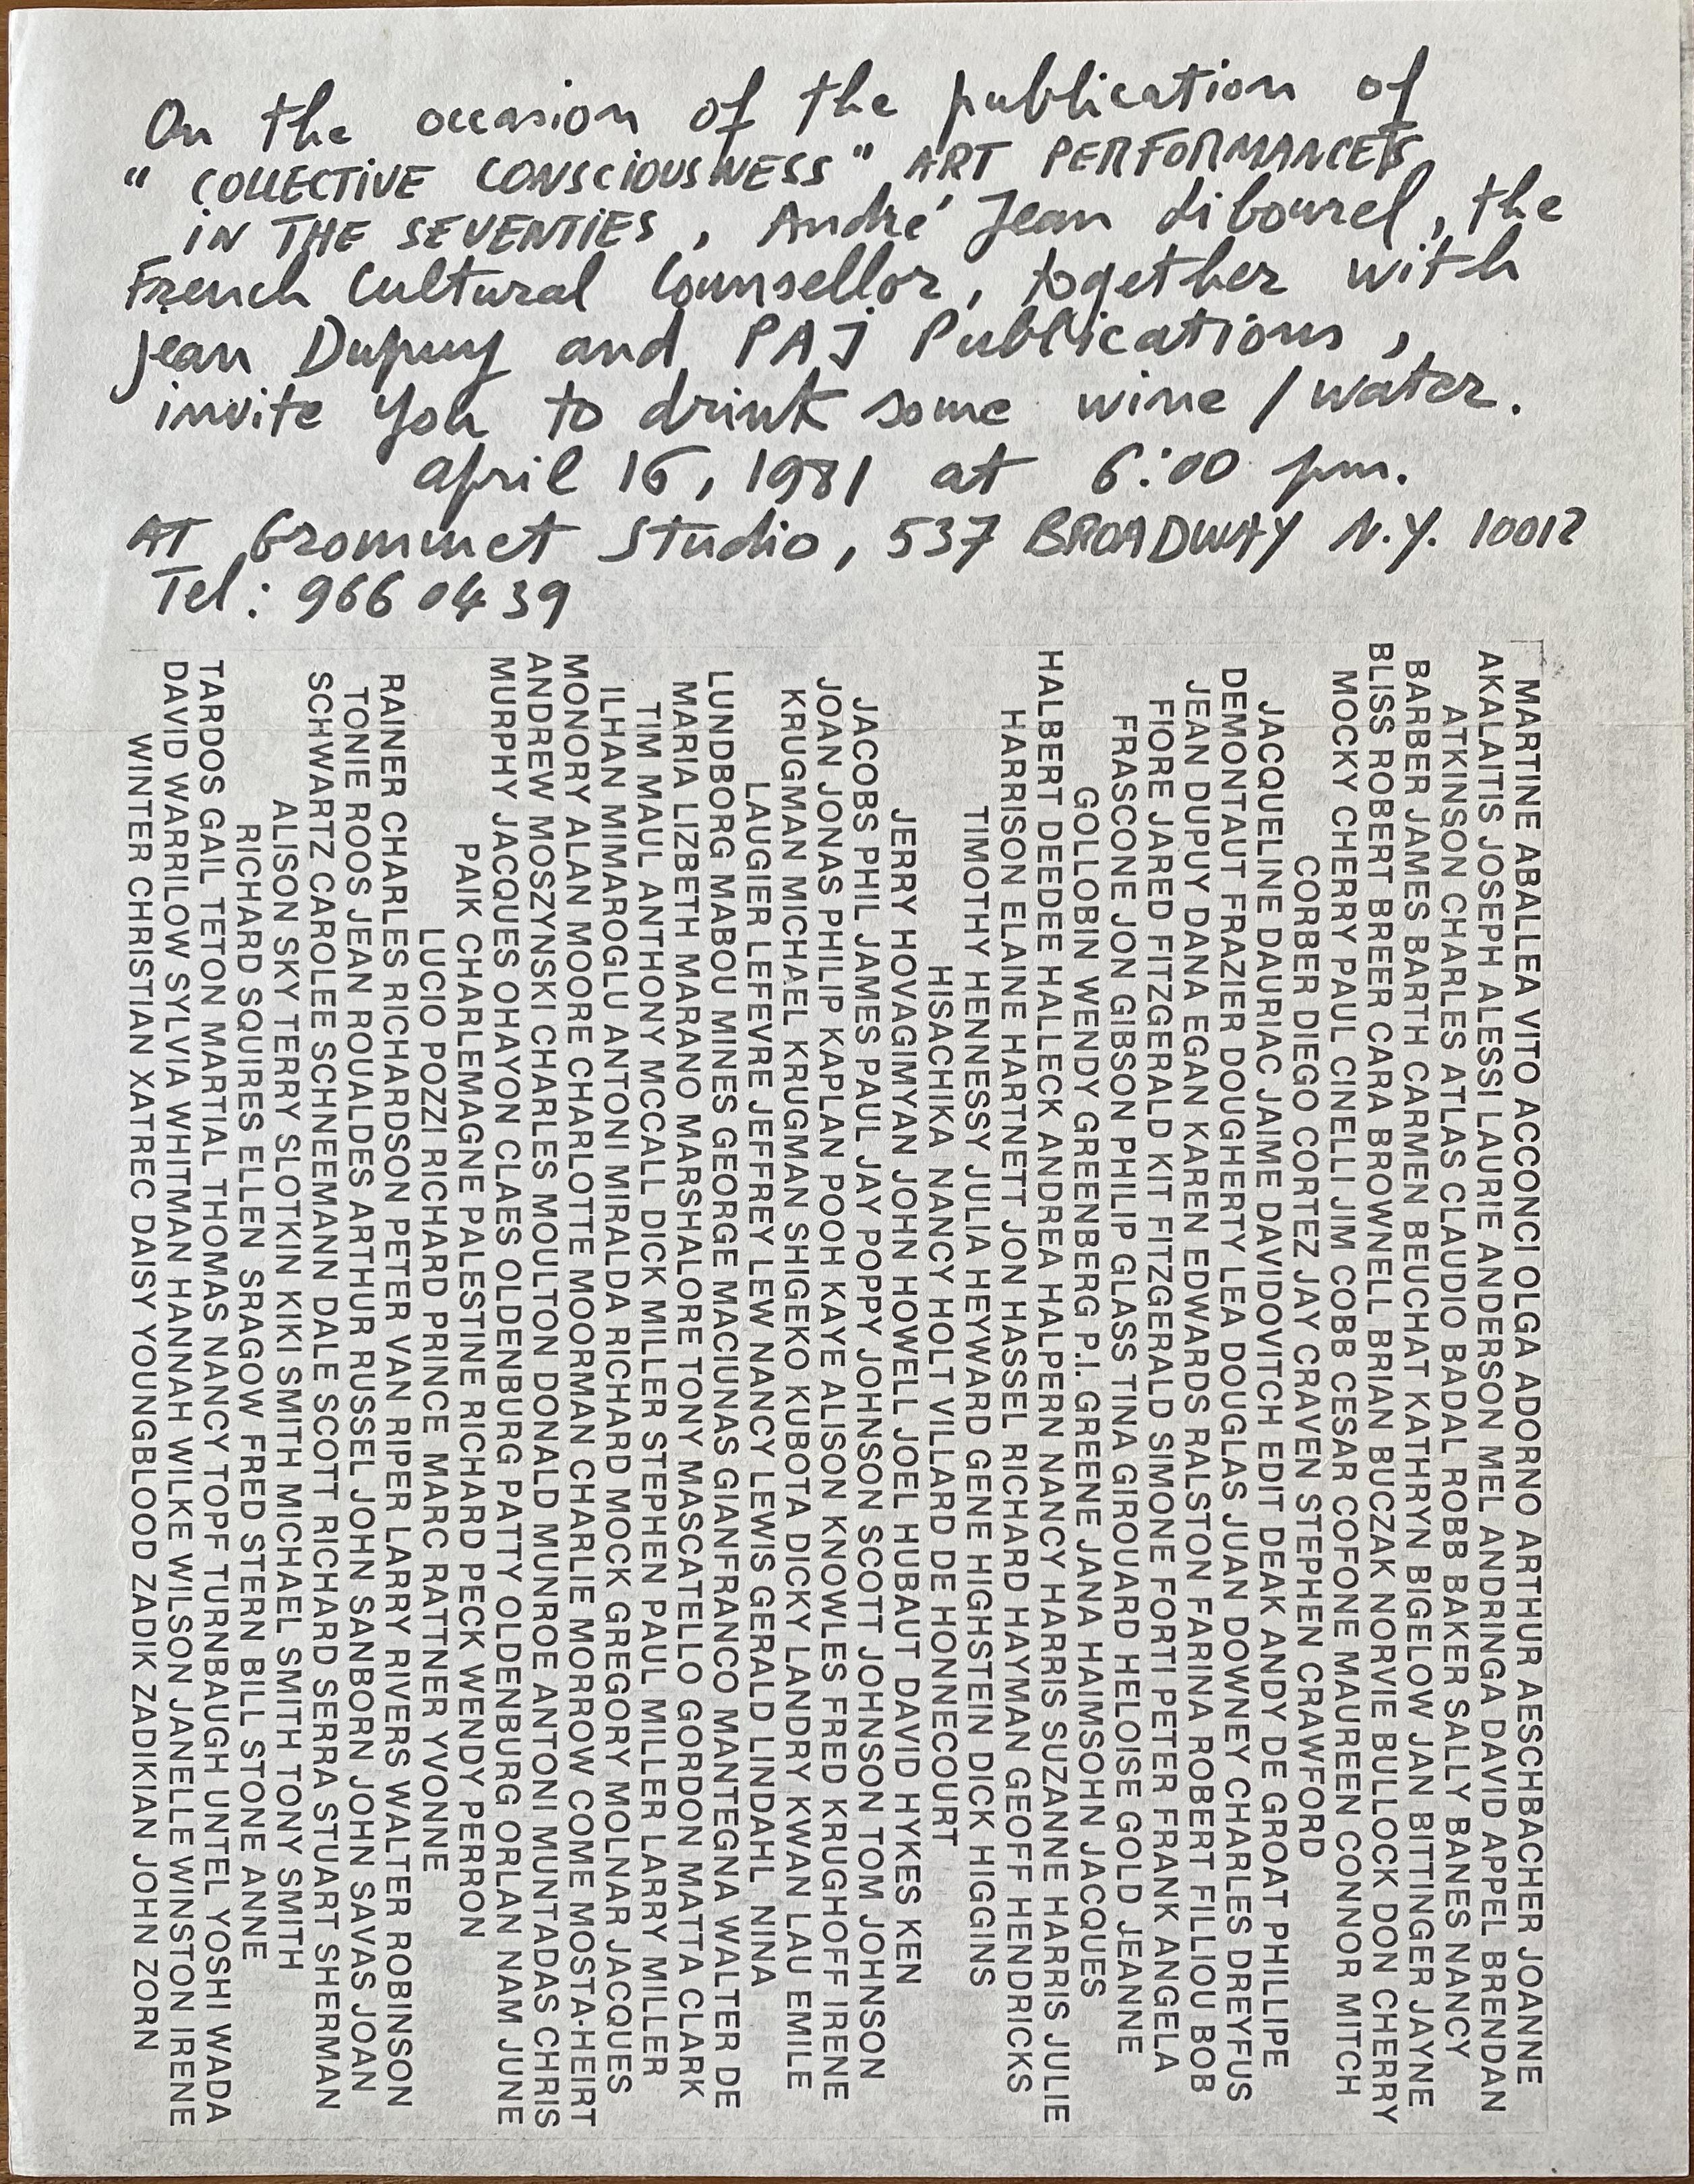 On the occasion of the publication of
"COLLECTIVE CONSCIOUSNESS" ART PERFORMANCES
IN THE SEVENTIES, André Jean Libourel, the
French Cultural Counsellor, together with
Jean Dupuy and PAJ Publications,
invite you to drink some wine / water.
april 16, 1981 at 6:00 pm.
AT Grommet Studio, 537 BROADWAY N.Y. 10012
Tel: 966 04 39
MARTINE ABALLEA VITO ACCONCI OLGA ADORNO ARTHUR AESCHBACHER JOANNE
AKALAITIS JOSEPH ALESSI LAURIE ANDERSON MEL ANDRINGA DAVID APPEL BRENDAN
ATKINSON CHARLES ATLAS CLAUDIO BADAL ROBB BAKER SALLY BANES NANCY
BARBER JAMES BARTH CARMEN BEUCHAT KATHRYN BIGELOW JAN BITTINGER JAYNE
BLISS ROBERT BREER CARA BROWNELL BRIAN BUCZAK NORVIE BULLOCK DON CHERRY
MOCKY CHERRY PAUL CINELLI JIM COBB CESAR COFONE MAUREEN CONNOR MITCH
CORBER DIEGO CORTEZ JAY CRAVEN STEPHEN CRAWFORD
JACQUELINE DAURIAC JAIME DAVIDOVITCH EDIT DEAK ANDY DE GROAT PHILLIPE
DEMONTAUT FRAZIER DOUGHERTY LEA DOUGLAS JUAN DOWNEY CHARLES DREYFUS
JEAN DUPUY DANA EGAN KAREN EDWARDS RALSTON FARINA ROBERT FILLIOU BOB
FIORE JARED FITZGERALD KIT FITZGERALD SIMONE FORTI PETER FRANK ANGELA
FRASCONE JON GIBSON PHILIP GLASS TINA GIROUARD HELOISE GOLD JEANNE
GOLLOBIN WENDY GREENBERG P.I. GREENE JANA HAIMSOHN JACQUES
HALBERT DEEDEE HALLECK ANDREA HALPERN NANCY HARRIS SUZANNE HARRIS JULIE
HARRISON ELAINE HARTNETT JON HASSEL RICHARD HAYMAN GEOFF HENDRICKS
TIMOTHY HENNESSY JULIA HEYWARD GENE HIGHSTEIN DICK HIGGINS
HISACHIKA NANCY HOLT VILLARD DE HONNECOURT
JERRY HOVAGIMYAN JOHN HOWELL JOEL HUBAUT DAVID HYKES KEN
JACOBS PHIL JAMES PAUL JAY POPPY JOHNSON SCOTT JOHNSON TOM JOHNSON
JOAN JONAS PHILIP KAPLAN POOH KAYE ALISON KNOWLES FRED KRUGHOFF IRENE
KRUGMAN MICHAEL KRUGMAN SHIGEKO KUBOTA DICKY LANDRY KWAN LAU EMILE
LAUGIER LEFEVRE JEFFREY LEW NANCY LEWIS GERALD LINDAHL NINA
LUNDBORG MABOU MINES GEORGE MACIUNAS GIANFRANCO MANTEGNA WALTER DE
MARIA LIZBETH MARANO MARSHALORE TONY MASCATELLO GORDON MATTA CLARK
TIM MAUL ANTHONY MCCALL DICK MILLER STEPHEN PAUL MILLER LARRY MILLER
ILHAN MIMAROGLU ANTONI MIRALDA RICHARD MOCK GREGORY MOLNAR JACQUES
MONORY ALAN MOORE CHARLOTTE MOORMAN CHARLIE MORROW COME MOSTA-HEIRT
ANDREW MOSZYNSKI CHARLES MOULTON DONALD MUNROE ANTONI MUNTADAS CHRIS
MURPHY JACQUES OHAYON CLAES OLDENBURG PATTY OLDENBURG ORLAN NAM JUNE
PAIK CHARLEMAGNE PALESTINE RICHARD PECK WENDY PERRON
LUCIO POZZI RICHARD PRINCE MARC RATTNER YVONNE
RAINER CHARLES RICHARDSON PETER VAN RIPER LARRY RIVERS WALTER ROBINSON
TONIE ROOS JEAN ROUALDES ARTHUR RUSSEL JOHN SANBORN JOHN SAVAS JOAN
SCHWARTZ CAROLEE SCHNEEMANN DALE SCOTT RICHARD SERRA STUART SHERMAN
ALISON SKY TERRY SLOTKIN KIKI SMITH MICHAEL SMITH TONY SMITH
RICHARD SQUIRES ELLEN SRAGOW FRED STERN BILL STONE ANNE
TARDOS GAIL TETON MARTIAL THOMAS NANCY TOPF TURNBAUGH UNTEL YOSHI WADA
DAVID WARRILOW SYLVIA WHITMAN HANNAH WILKE WILSON JANELLE WINSTON IRENE
WINTER CHRISTIAN XATREC DAISY YOUNGBLOOD ZADIK ZADIKIAN JOHN ZORN